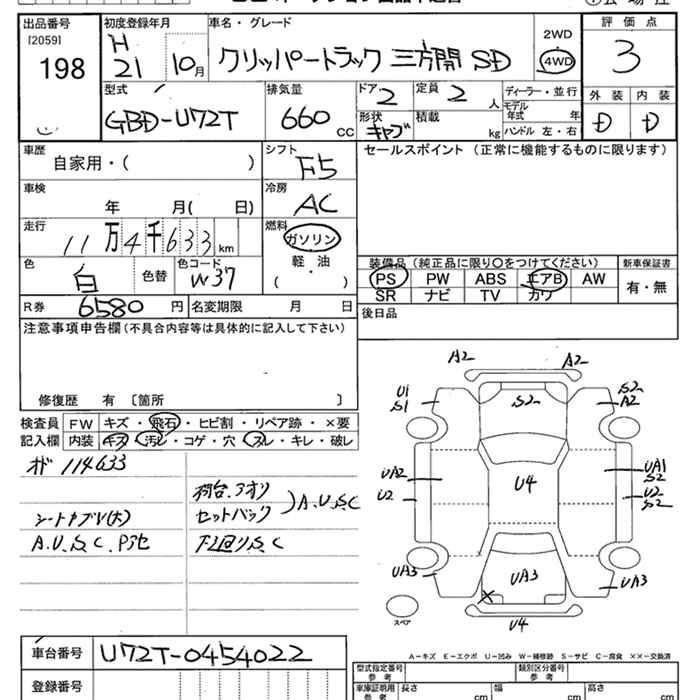 出品番号 初度登録年月 車名・グレード 評価点
[2059] H
198 21 10月 クリッパートラック 三方開 SD 2WD 4WD 3
外装 内装
型式 排気量 ドア 2 定員 2人 ディーラー・並行
GBD-U72T 660 CC モデル年式 年
形状 キャブ 積載 kg ハンドル 左・右 D D
車歴 シフト セールスポイント (正常に機能するものに限ります)
自家用・( ) F5
車検 冷房
年 月( 日) AC
走行 燃料
11万4千633km ガソリン
色 色コード 軽・油 装備品 (純正品に限り○をつけてください) 新車保証書
白 色替 W37 ・( ) PS PW ABS エアB AW 有・無
SR ナビ TV カワ
R券 6580円 名変期限 月 日 後日品
注意事項申告欄 (不具合内容等は具体的に記入して下さい)
修復歴 有 〔箇所 〕
検査員 FW キズ・飛石・ヒビ割・リペア跡・×要
記入欄 内装 キズ・汚レ・コゲ・穴・スレ・キレ・破レ
114633
荷台、アオリ
シートヤブレ(大) セットバック )A.U.S.C
A.U.S.C. 下回りS.C
A2 A2
U1 S2 S2
S1 A2
UA2 UA1
U2 U4 S2
U2
S2
UA3 UA3 UA3
X
U4
スペア
A-キズ E-エクボ U-凹み W-補修跡 S-サビ C-腐食 ××-交換済
車台番号 U72T-0454022
型式指定番号 参考 類別区分番号 参考
登録番号 車庫証明用 参考 長さ cm 幅 cm 高さ cm